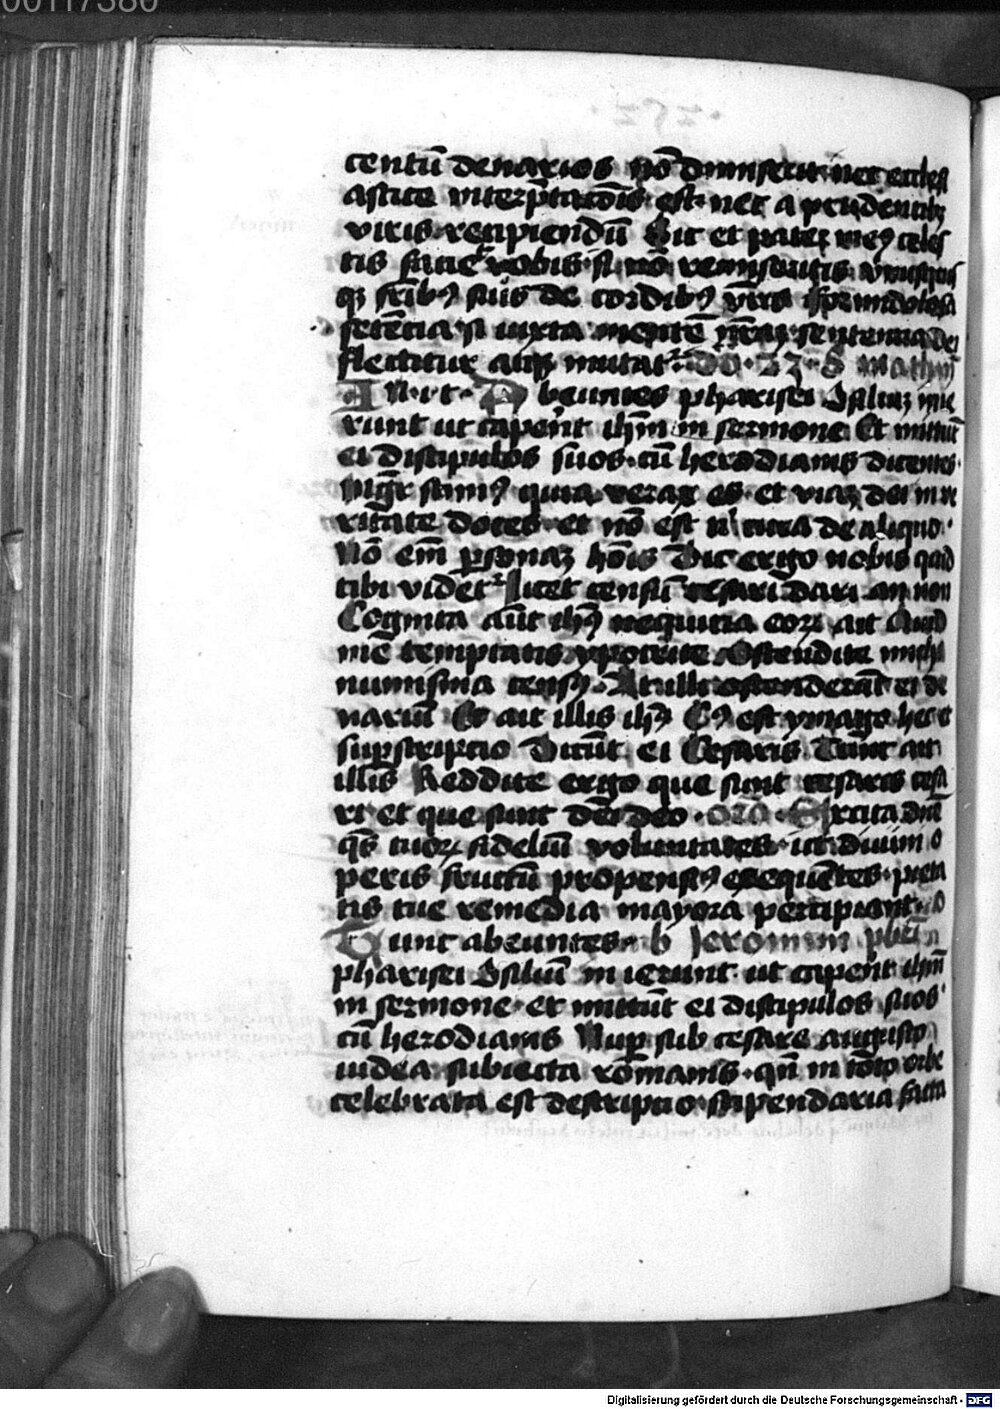 00117380
centū denarios nō dimiserit nec eccles
astice interp̄tatōis est nec a prudentibꝫ
viris recipiendū Sic et pater meꝰ celes
tis faciet vobis si nō remiseritis vnusquis
qꝫ fr̄ibꝰ suis de cordibꝰ vr̄is
sētēcia si iuxta mentē nr̄aꝫ sententia dei
flectitur atqꝫ mutatᷣ do 23 S mathei
In i t Abeuntes pharisei ꝯsiliuꝫ inie
runt ut caperēt ihm̄ in sermone Et mittūt
ei discipulos suos cū herodianis dicentes
Mgr̄ scimꝰ quia verax es et viaꝫ dei in ve
ritate doces et nō est tᷣ cura de aliquo
Nō em̄ ꝑsonaꝫ hōis Dic ergo nobis quid
tibi videtᷣ licet censū cesari dari an non
Cognita aūt ihꝰ nequitia eoꝝ ait Quid
me temptatis ypocrite Ostendite michi
numisma censꝰ At illi ostenderūt ei de
nariū Et ait illis ihꝰ Cꝰ est ymago hec et
suꝑscriptio Dicūt ei Cesaris Tunc ait
illis Reddite ergo que sunt cesaris cesa
ri et que sunt dei deo orō Excita dn̄e
qs̄ tuoꝝ fideliū voluntates ut diuini o
peris fructū propensiꝰ exequētes pieta
tis tue remedia mayora percipiant o
Tunc abeuntes b Jeronimi pbri
pharisei ꝯsiliū in ierunt ut caperēt ihm̄
in sermone et mittūt ei discipulos suos
cū herodianis Nuꝑ sub cesare augusto
iudea subiecta romanis qn̄ in toto orbe
celebrata est descriptio stipendaria facta
Digitalisierung gefördert durch die Deutsche Forschungsgemeinschaft - DFG